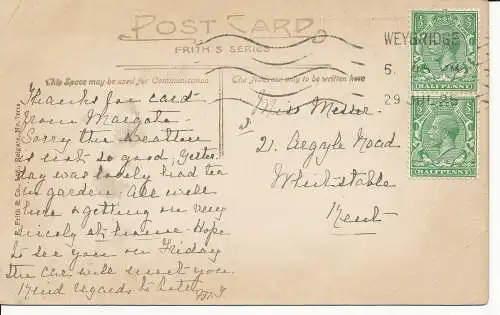 POST CARD
FRITH'S SERIES
This Space may be used for Communication
The Address only to be written here
WEYBRIDGE
29 JUL
HALFPENNY
HALFPENNY
Thanks for card
from Margate.
Sorry the weather
is not so good, yester
day was lovely had tea
in garden. All well
here & getting on very
nicely at home - Hope
to see you on Friday
the car will meet you.
Kind regards to
Miss
21. Argyle Road
Whitstable
Kent